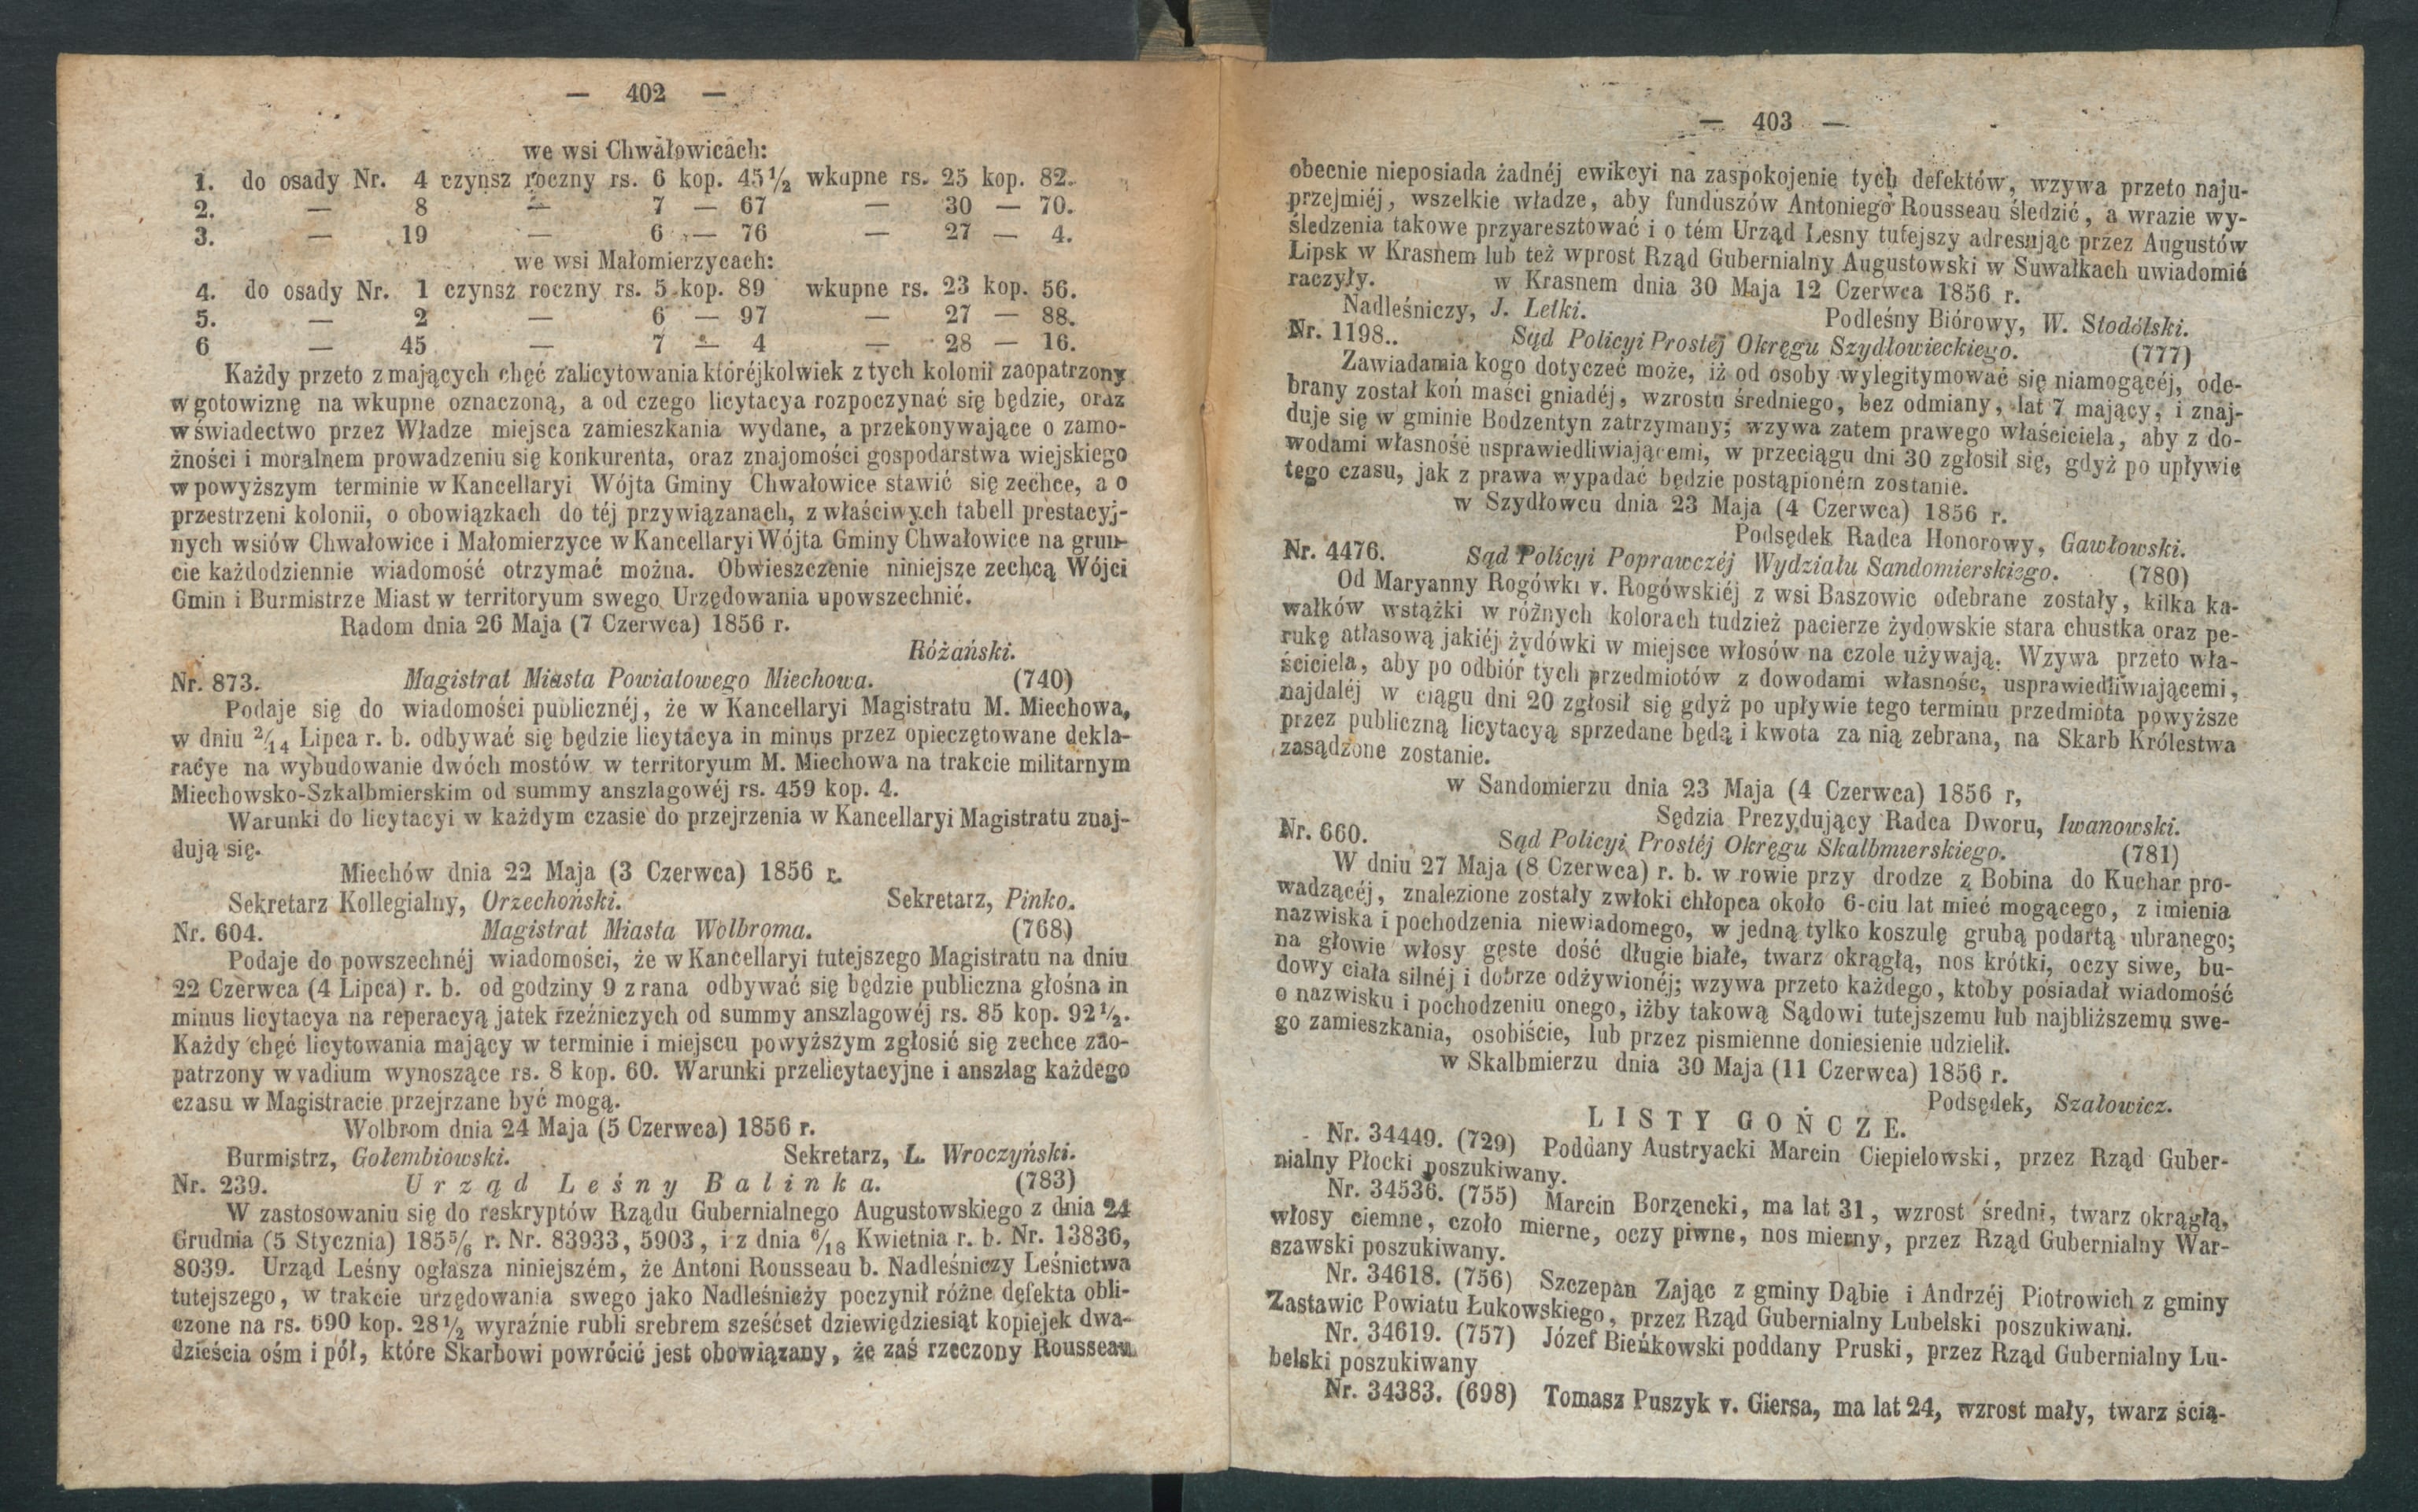 — 402 —
we wsi Chwałowicach:
1. do osady Nr. 4 czynsz roczny rs. 6 kop. 45½ wkupne rs. 25 kop. 82.
2. — 8 — 7 — 67 — 30 — 70.
3. — 19 — 6 — 76 — 27 — 4.
we wsi Małomierzycach:
4. do osady Nr. 1 czynsz roczny rs. 5 kop. 89 wkupne rs. 23 kop. 56.
5. — 2 — 6 — 97 — 27 — 88.
6 — 45 — 7 — 4 — 28 — 16.
Każdy przeto z mających chęć zalicytowania któréjkolwiek z tych kolonii zaopatrzony
w gotowiznę na wkupne oznaczoną, a od czego licytacya rozpoczynać się będzie, oraz
w świadectwo przez Władze miejsca zamieszkania wydane, a przekonywające o zamo-
żności i moralnem prowadzeniu się konkurenta, oraz znajomości gospodarstwa wiejskiego
w powyższym terminie w Kancellaryi Wójta Gminy Chwałowice stawić się zechce, a o
przestrzeni kolonii, o obowiązkach do téj przywiązanach, z właściwych tabell prestacyj-
nych wsiów Chwałowice i Małomierzyce w Kancellaryi Wójta Gminy Chwałowice na grun-
cie każdodziennie wiadomość otrzymać można. Obwieszczenie niniejsze zechcą Wójci
Gmin i Burmistrze Miast w territoryum swego Urzędowania upowszechnić.
Radom dnia 26 Maja (7 Czerwca) 1856 r.
Różański.
Nr. 873. Magistrat Miasta Powiatowego Miechowa. (740)
Podaje się do wiadomości publicznéj, że w Kancellaryi Magistratu M. Miechowa,
w dniu 2/14 Lipca r. b. odbywać się będzie licytacya in minus przez opieczętowane dekla-
racye na wybudowanie dwóch mostów w territoryum M. Miechowa na trakcie militarnym
Miechowsko-Szkalbmierskim od summy anszlagowéj rs. 459 kop. 4.
Warunki do licytacyi w każdym czasie do przejrzenia w Kancellaryi Magistratu znaj-
dują się.
Miechów dnia 22 Maja (3 Czerwca) 1856 r.
Sekretarz Kollegialny, Orzechoński. Sekretarz, Pinko.
Nr. 604. Magistrat Miasta Wolbroma. (768)
Podaje do powszechnéj wiadomości, że w Kancellaryi tutejszego Magistratu na dniu
22 Czerwca (4 Lipca) r. b. od godziny 9 z rana odbywać się będzie publiczna głośna in
minus licytacya na reperacyą jatek rzeźniczych od summy anszlagowéj rs. 85 kop. 92½.
Każdy chęć licytowania mający w terminie i miejscu powyższym zgłosić się zechce zao-
patrzony w vadium wynoszące rs. 8 kop. 60. Warunki przelicytacyjne i anszlag każdego
czasu w Magistracie przejrzane być mogą.
Wolbrom dnia 24 Maja (5 Czerwca) 1856 r.
Burmistrz, Gołembiowski. Sekretarz, L. Wroczyński.
Nr. 239. Urząd Leśny Balinka. (783)
W zastosowaniu się do reskryptów Rządu Gubernialnego Augustowskiego z dnia 24
Grudnia (5 Stycznia) 185 5/6 r. Nr. 83933, 5903, i z dnia 6/18 Kwietnia r. b. Nr. 13836,
8039. Urząd Leśny ogłasza niniejszém, że Antoni Rousseau b. Nadleśniczy Leśnictwa
tutejszego, w trakcie urzędowania swego jako Nadleśnieży poczynił różne defekta obli-
czone na rs. 690 kop. 28½ wyraźnie rubli srebrem sześćset dziewiędziesiąt kopiejek dwa-
dzieścia ośm i pół, które Skarbowi powrócić jest obowiązany, że zaś rzeczony Rousseau
— 403 —
obecnie nieposiada żadnéj ewikcyi na zaspokojenie tych defektów, wzywa przeto naju-
przejmiéj, wszelkie władze, aby funduszów Antoniego Rousseau śledzić, a wrazie wy-
śledzenia takowe przyaresztować i o tém Urząd Lesny tutejszy adresując przez Augustów
Lipsk w Krasnem lub też wprost Rząd Gubernialny Augustowski w Suwałkach uwiadomić
raczyły. w Krasnem dnia 30 Maja 12 Czerwca 1856 r.
Nadleśniczy, J. Letki. Podleśny Biórowy, W. Stodólski.
Nr. 1198.. Sąd Policyi Prostéj Okręgu Szydłowieckiego. (777)
Zawiadamia kogo dotyczeć może, iż od osoby wylegitymować się niamogącéj, ode-
brany został koń maści gniadéj, wzrostu średniego, bez odmiany, lat 7 mający, i znaj-
duje się w gminie Bodzentyn zatrzymany; wzywa zatem prawego właściciela, aby z do-
wodami własność usprawiedliwiającemi, w przeciągu dni 30 zgłosił się, gdyż po upływie
tego czasu, jak z prawa wypadać będzie postąpioném zostanie.
w Szydłowcu dnia 23 Maja (4 Czerwca) 1856 r.
Podsędek Radca Honorowy, Gawłowski.
Nr. 4476. Sąd Policyi Poprawczéj Wydziału Sandomierskiego. (780)
Od Maryanny Rogówki v. Rogówskiéj z wsi Baszowic odebrane zostały, kilka ka-
wałków wstążki w różnych kolorach tudzież pacierze żydowskie stara chustka oraz pe-
rukę atłasową jakiéj żydówki w miejsce włosów na czole używają. Wzywa przeto wła-
ściciela, aby po odbiór tych przedmiotów z dowodami własność, usprawiedliwiającemi,
najdaléj w ciągu dni 20 zgłosił się gdyż po upływie tego terminu przedmiota powyższe
przez publiczną licytacyą sprzedane będą i kwota za nią zebrana, na Skarb Królestwa
zasądzone zostanie.
w Sandomierzu dnia 23 Maja (4 Czerwca) 1856 r,
Sędzia Prezydujący Radca Dworu, Iwanowski.
Nr. 660. Sąd Policyi Prostéj Okręgu Skalbmierskiego. (781)
W dniu 27 Maja (8 Czerwca) r. b. w rowie przy drodze z Bobina do Kuchar pro-
wadzącéj, znalezione zostały zwłoki chłopca około 6-ciu lat mieć mogącego, z imienia
nazwiska i pochodzenia niewiadomego, w jedną tylko koszulę grubą podartą ubranego;
na głowie włosy gęste dość długie białe, twarz okrągłą, nos krótki, oczy siwe, bu-
dowy ciała silnéj i dobrze odżywionéj; wzywa przeto każdego, ktoby posiadał wiadomość
o nazwisku i pochodzeniu onego, iżby takową Sądowi tutejszemu lub najbliższemu swe-
go zamieszkania, osobiście, lub przez pismienne doniesienie udzielił.
w Skalbmierzu dnia 30 Maja (11 Czerwca) 1856 r.
Podsędek, Szałowicz.
LISTY GOŃCZE.
Nr. 34449. (729) Poddany Austryacki Marcin Ciepielowski, przez Rząd Guber-
nialny Płocki poszukiwany.
Nr. 34536. (755) Marcin Borzencki, ma lat 31, wzrost średni, twarz okrągłą,
włosy ciemne, czoło mierne, oczy piwne, nos mierny, przez Rząd Gubernialny War-
szawski poszukiwany.
Nr. 34618. (756) Szczepan Zając z gminy Dąbie i Andrzéj Piotrowich z gminy
Zastawic Powiatu Łukowskiego, przez Rząd Gubernialny Lubelski poszukiwani.
Nr. 34619. (757) Józef Bieńkowski poddany Pruski, przez Rząd Gubernialny Lu-
belski poszukiwany
Nr. 34383. (698) Tomasz Puszyk v. Giersa, ma lat 24, wzrost mały, twarz ścią-